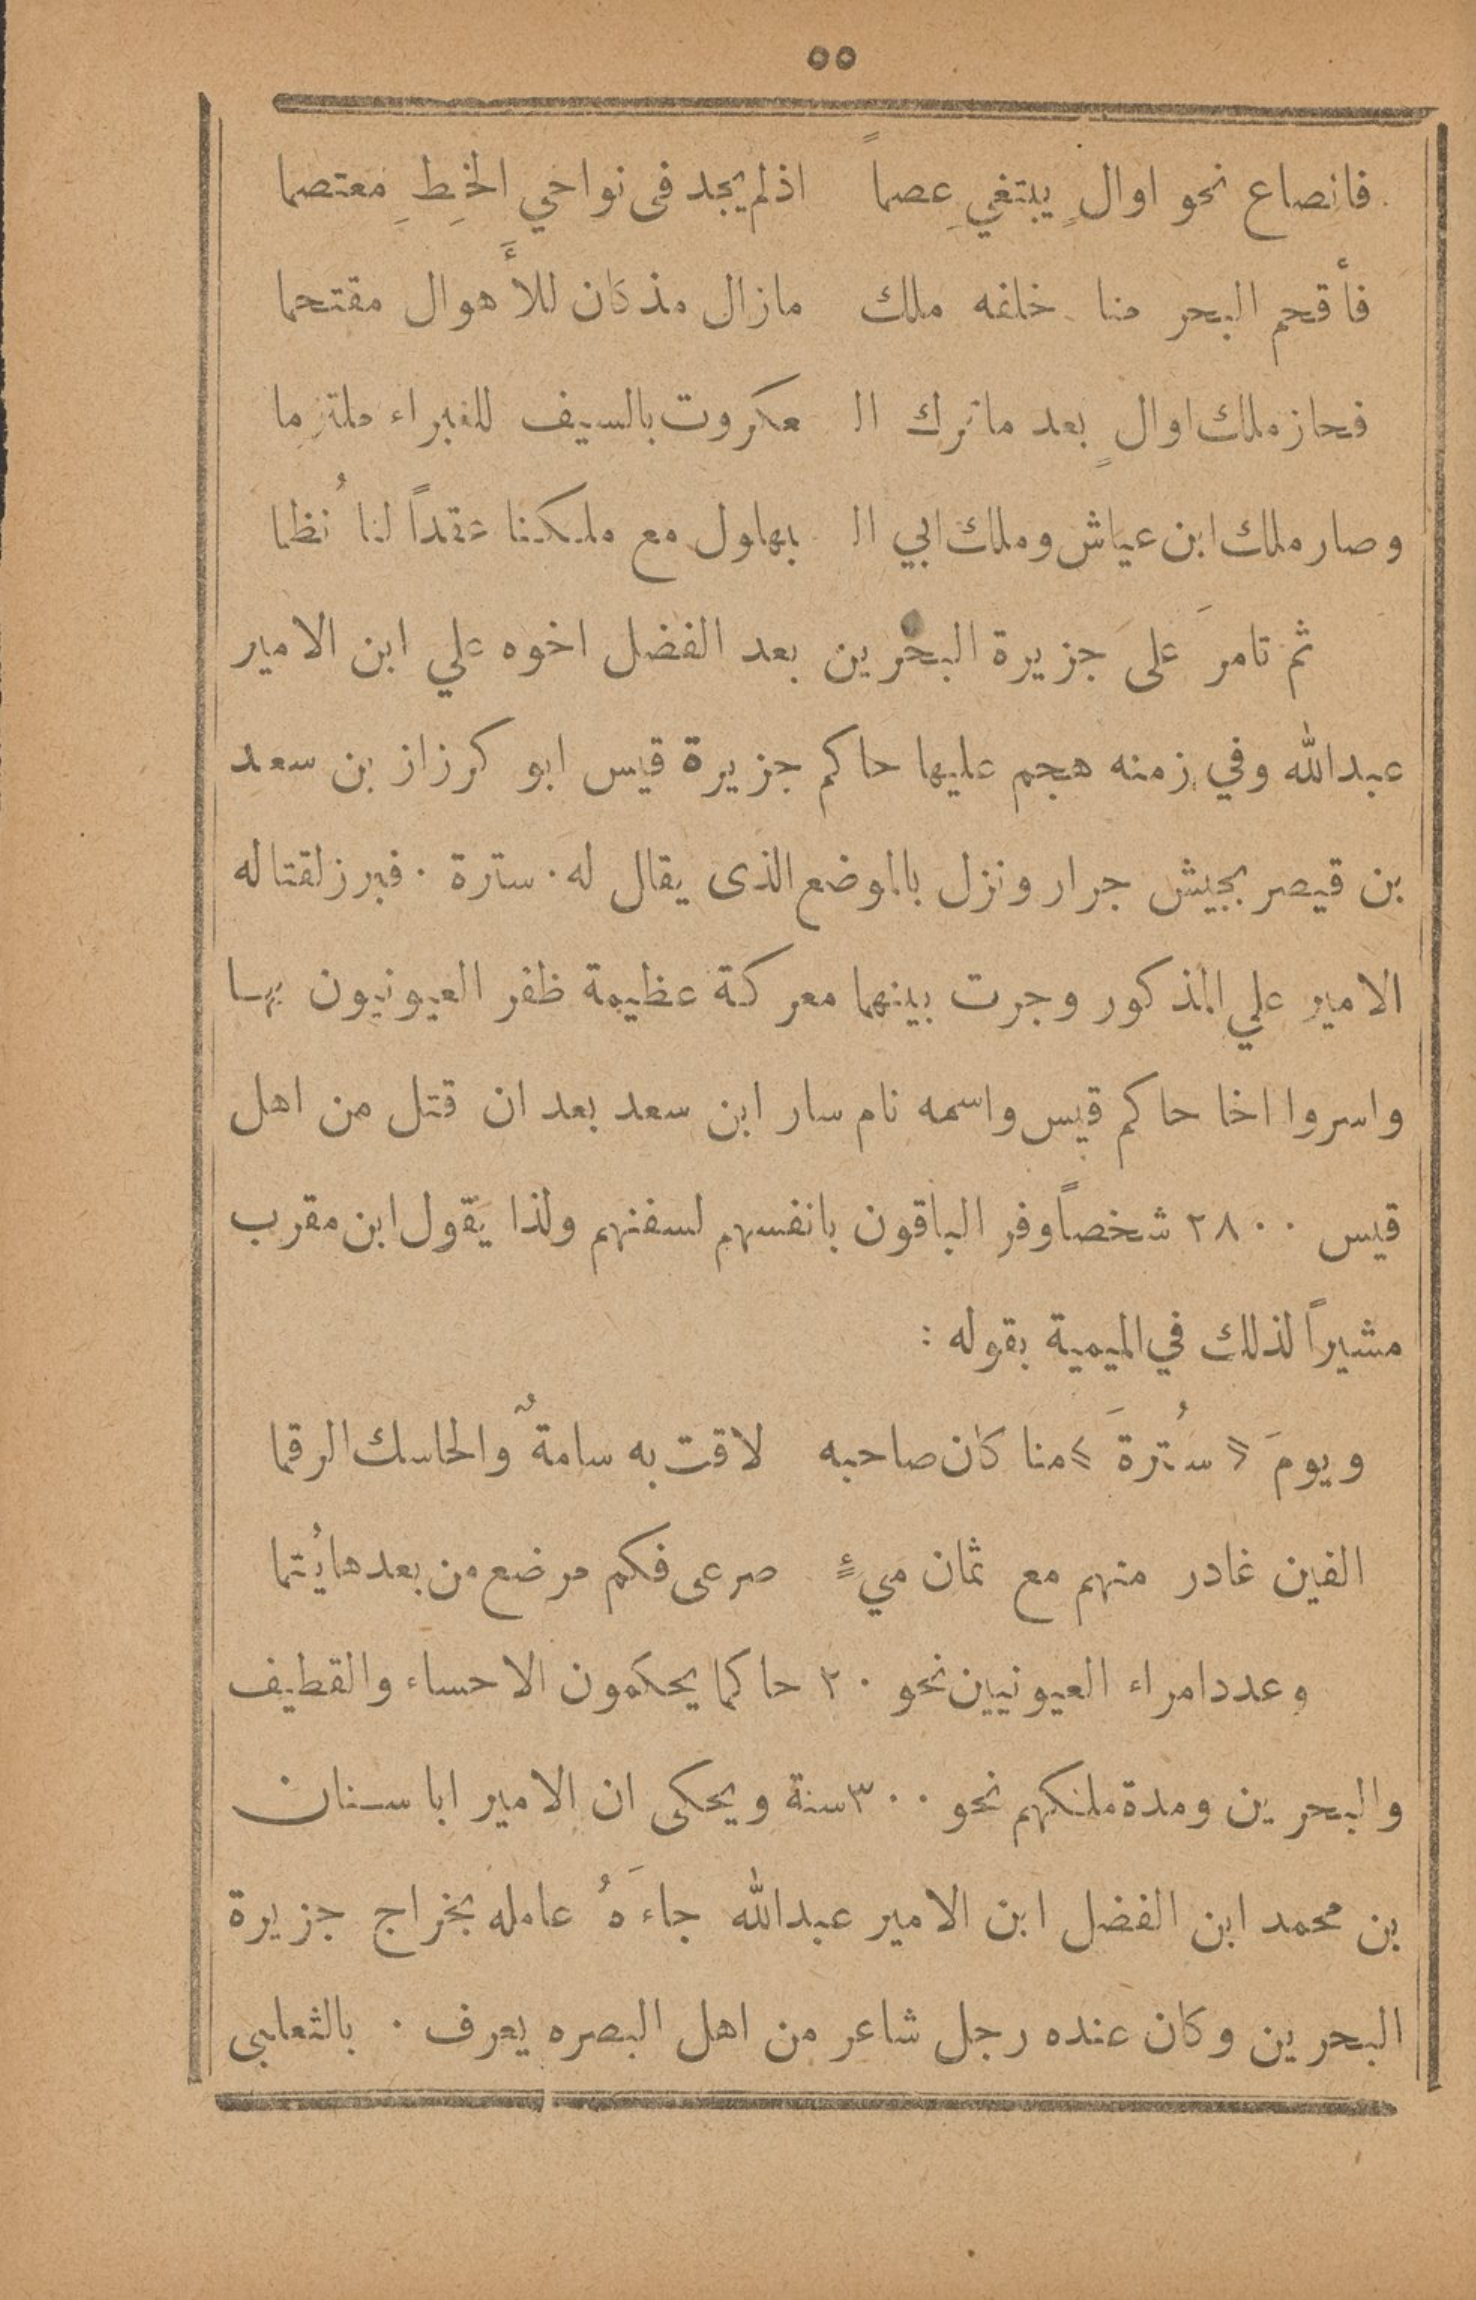 ٥٥
فانصاع نحو اوالٍ يبتغيِ عصماً اذلم يجد فى نواحي الخِطِ معتصما
فأقحم البحر منا خلفه ملك مازال مذكان للأَهوال مقتحما
فحاز ملك اوالٍ بعد ماترك ال عكروت بالسيف للغبراء ملتزما
وصار ملك ابن عياش وملك ابي ال بهلول مع ملكنا عقداً لنا نُظما
ثم تامرَ على جزيرة البحرين بعد الفضل اخوه علي ابن الامير
عبدالله وفي زمنه هجم عليها حاكم جزيرة قيس ابو كرزاز بن سعد
بن قيصر بجيش جرار ونزل بالموضع الذى يقال له . سترة . فبرز لقتاله
الامير علي المذكور وجرت بينهما معركة عظيمة ظفر العيونيون بها
واسروا اخا حاكم قيس واسمه نام سار ابن سعد بعد ان قتل من اهل
قيس ٢٨٠٠ شخصاً وفر الباقون بانفسهم لسفنهم ولذا يقول ابن مقرب
مشيراً لذلك في الميمية بقوله :
ويومَ « سُترةَ » منا كان صاحبه لاقت به سامةٌ والحاسك الرقما
الفين غادر منهم مع ثمان ميءٍ صرعى فكم مرضع من بعدها يُتما
وعدد امراء العيونيين نحو ٢٠ حاكما يحكمون الاحساء والقطيف
والبحرين ومدة ملكهم نحو ٣٠٠ سنة ويحكى ان الامير ابا سنان
بن محمد ابن الفضل ابن الامير عبدالله جاءَهُ عامله بخراج جزيرة
البحرين وكان عنده رجل شاعر من اهل البصره يعرف . بالثعلبى